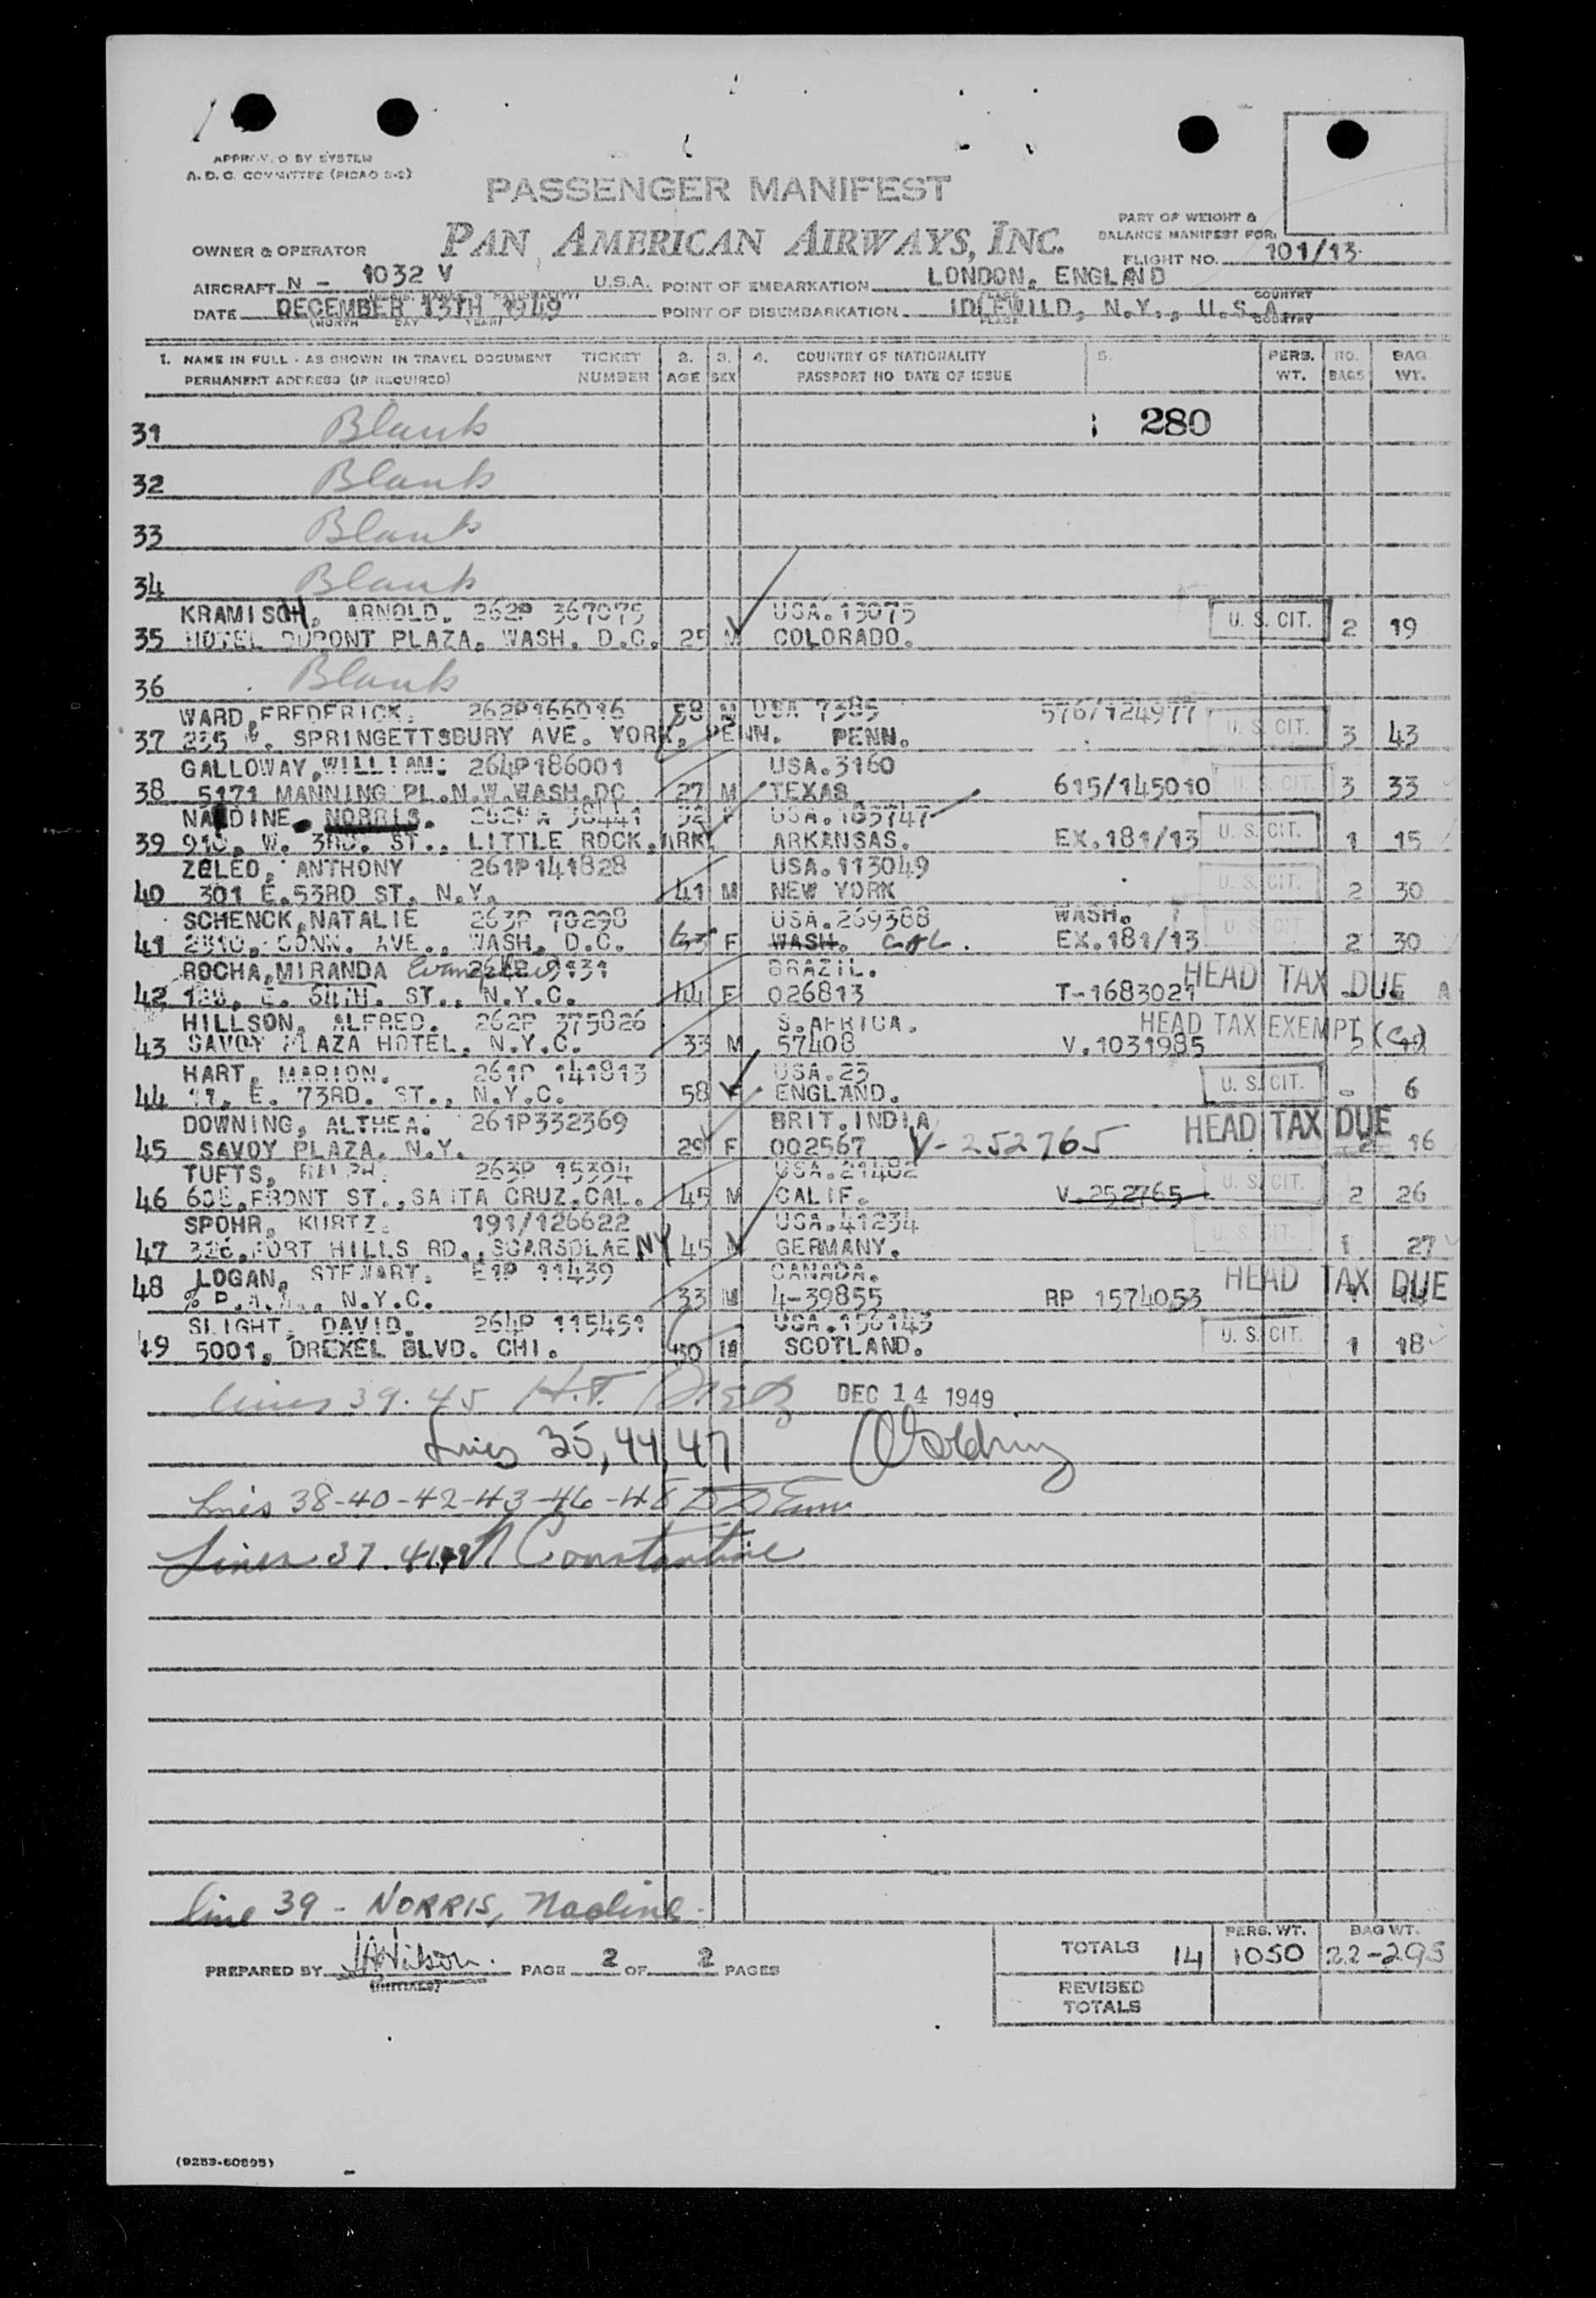 APPROVED BY SYSTEM
A. D. C. COMMITTEE (PICAO 3-2)
PASSENGER MANIFEST
PART OF WEIGHT &
BALANCE MANIFEST FOR:
OWNER & OPERATOR PAN AMERICAN AIRWAYS, INC.
FLIGHT NO. 101/13
AIRCRAFT N - 1032 V U.S.A. POINT OF EMBARKATION LONDON, ENGLAND
PLACE COUNTRY
DATE DECEMBER 13TH 1949 POINT OF DISEMBARKATION IDLEWILD, N.Y., U.S.A.
(MONTH DAY YEAR) PLACE COUNTRY
1. NAME IN FULL - AS SHOWN IN TRAVEL DOCUMENT TICKET 2. 3. 4. COUNTRY OF NATIONALITY 5. PERS. NO. BAG
PERMANENT ADDRESS (IF REQUIRED) NUMBER AGE SEX PASSPORT NO DATE OF ISSUE WT. BAGS WT.
31 Blank 280
32 Blank
33 Blank
34 Blank
KRAMISCH, ARNOLD. 262P 367075 USA.13075
35 HOTEL DUPONT PLAZA, WASH. D.C. 25 M COLORADO. U. S. CIT. 2 19
36 Blank
WARD, FREDERICK. 262P166016 58 M USA 7385 576/124977
37 235 SPRINGETTSBURY AVE. YORK, PENN. PENN. U. S. CIT. 3 43
GALLOWAY, WILLIAM. 264P186001 USA.3160
38 5171 MANNING PL.N.W.WASH.DC 27 M TEXAS 615/145010 U. S. CIT. 3 33
NADINE NORRIS. 38441 F USA.
39 910, W. 3RD. ST., LITTLE ROCK.ARK. ARKANSAS. EX.181/13 U. S. CIT. 1 15
ZELEO, ANTHONY 261P141828 USA.113049
40 301 E.53RD ST. N.Y. 41 M NEW YORK U. S. CIT. 2 30
SCHENCK, NATALIE 263P 70298 USA.269388 WASH.
41 2310, CONN. AVE., WASH. D.C. F WASH. EX.181/13 U. S. CIT. 2 30
ROCHA, MIRANDA BRAZIL.
42 E. 64TH. ST., N.Y.C. 44 F 026813 T-1683021 HEAD TAX DUE
HILLSON, ALFRED. 262P 375826 S.AFRICA.
43 SAVOY PLAZA HOTEL, N.Y.C. 33 M 57408 V.1031985 HEAD TAX EXEMPT
HART, MARION. 261P 141813 USA.23
44 11, E. 73RD. ST., N.Y.C. 58 F ENGLAND. U. S. CIT. - 6
DOWNING, ALTHEA. 261P332369 BRIT.INDIA
45 SAVOY PLAZA, N.Y. 29 F 002567 V-252765 HEAD TAX DUE 2 16
TUFTS, 263P 15394 USA.21482
46 FRONT ST.,SANTA CRUZ.CAL. 45 M CALIF. V.252765 U. S. CIT. 2 26
SPOHR, KURTZ. 191/126622 USA.41234
47 326,FORT HILLS RD.,SCARSDLAE NY 45 M GERMANY. U. S. CIT. 1 27
LOGAN, STEWART. 11439 CANADA.
48 % P.A.A., N.Y.C. 33 M 4-39855 RP 1574053 HEAD TAX DUE
SLIGHT, DAVID. 264P 115451 USA.156143
49 5001, DREXEL BLVD. CHI. M SCOTLAND. U. S. CIT. 1 18
Lines 39.45 H.T. DEC 14 1949
Lines 35, 44, 47
Lines 38-40-42-43-46-48
Lines 37. 41, 49 Constantine
line 39 - NORRIS, Nadine
PREPARED BY (INITIALS) PAGE 2 OF 2 PAGES
PERS. WT. BAG WT.
TOTALS 14 1050 22-295
REVISED
TOTALS
(9253-60895)